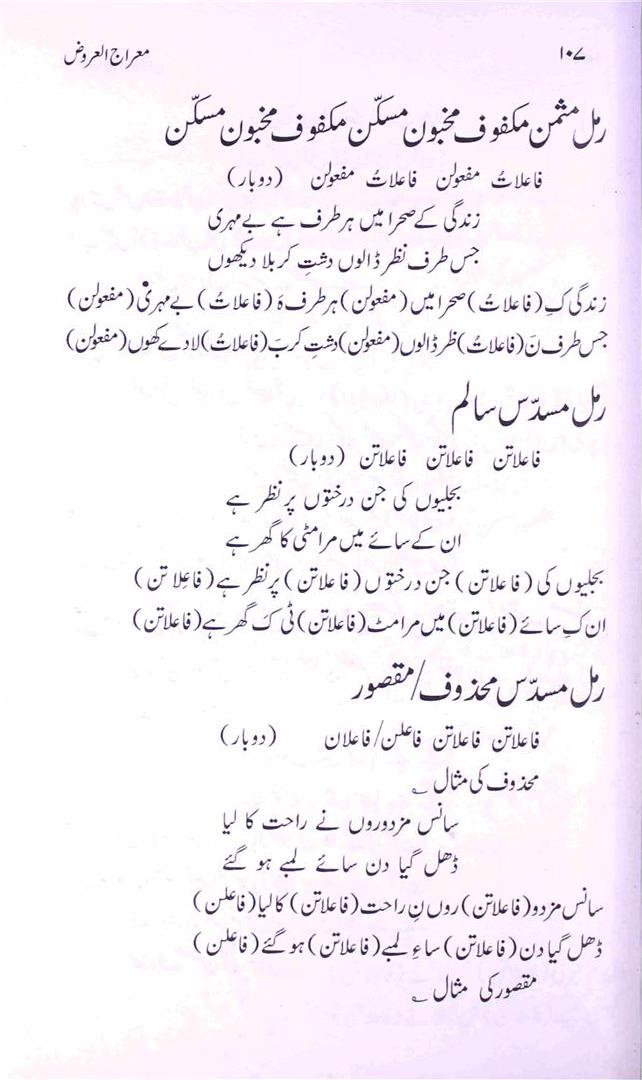 ۱۰۷
معراج العروض
رمل مثمن مکفوف مخبون مسکّن مکفوف مخبون مسکّن
فاعلاتُ مفعولن فاعلاتُ مفعولن (دوبار)
زندگی کے صحرا میں ہر طرف ہے بے مہری
جس طرف نظر ڈالوں دشتِ کربلا دیکھوں
زندگی کِ (فاعلاتُ) صحرا میں (مفعولن) ہر طرف ہَ (فاعلاتُ) بے مہری (مفعولن)
جس طرف نَ (فاعلاتُ) ظر ڈالوں (مفعولن) دشتِ کربَ (فاعلاتُ) لا دے کھوں (مفعولن)
رمل مسدّس سالم
فاعلاتن فاعلاتن فاعلاتن (دوبار)
بجلیوں کی جن درختوں پر نظر ہے
ان کے سائے میں مرا مٹی کا گھر ہے
بجلیوں کی (فاعلاتن) جن درختوں (فاعلاتن) پر نظر ہے (فاعلاتن)
ان کِ سائے (فاعلاتن) میں مرا مٹ (فاعلاتن) ٹی کَ گھر ہے (فاعلاتن)
رمل مسدّس محذوف/مقصور
فاعلاتن فاعلاتن فاعلن/فاعلان (دوبار)
محذوف کی مثال ؎
سانس مزدوروں نے راحت کا لیا
ڈھل گیا دن سائے لمبے ہو گئے
سانس مزدو (فاعلاتن) روں نِ راحت (فاعلاتن) کا لیا (فاعلن)
ڈھل گیا دن (فاعلاتن) ساءِ لمبے (فاعلاتن) ہو گئے (فاعلن)
مقصور کی مثال ؎